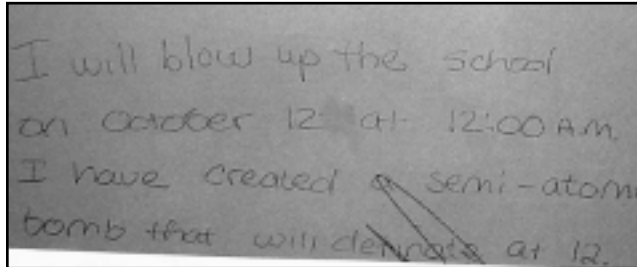 I will blow up the school
on October 12 at 12:00 A.M.
I have created a semi-atomi
bomb that will detinate at 12.